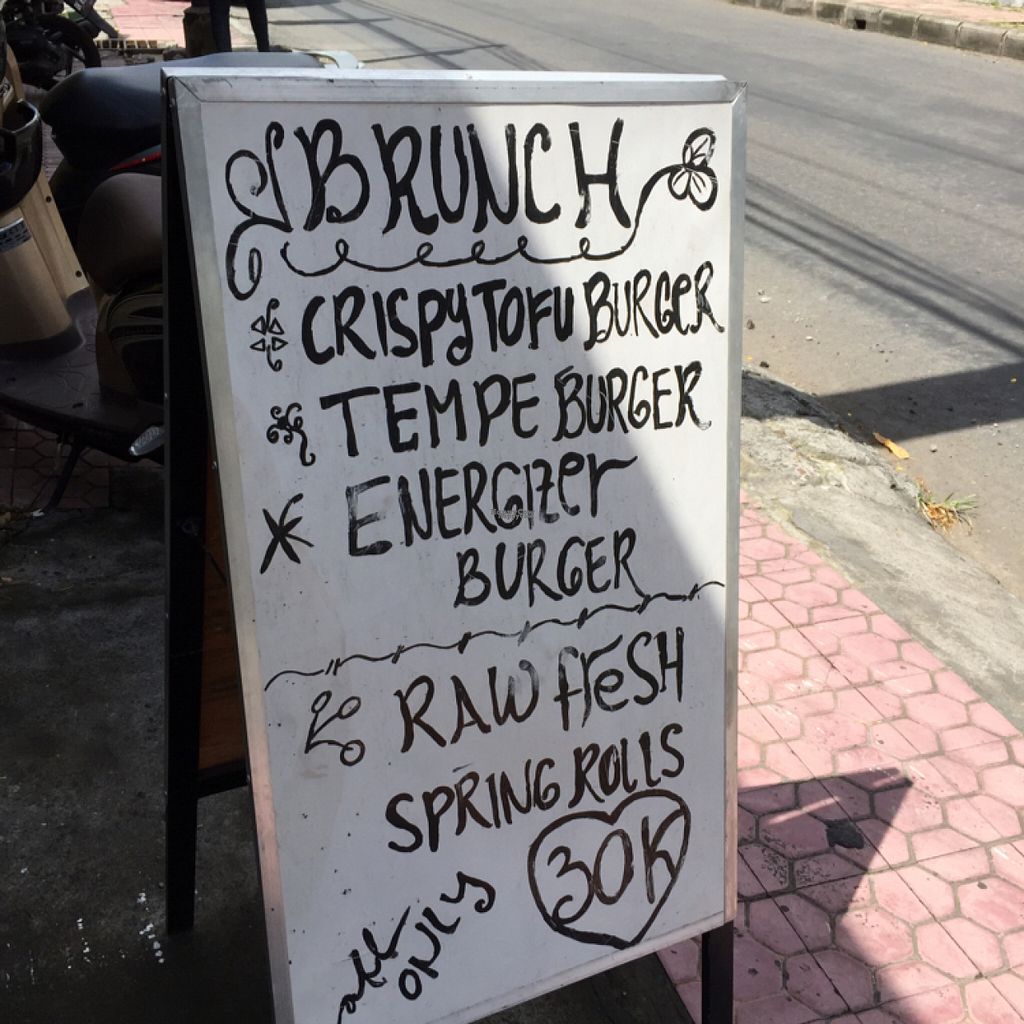 BRUNCH
CRISPY TOFU BURGER
TEMPE BURGER
ENERGIZER
BURGER
RAW FRESH
SPRING ROLLS
30K
all
ONLY